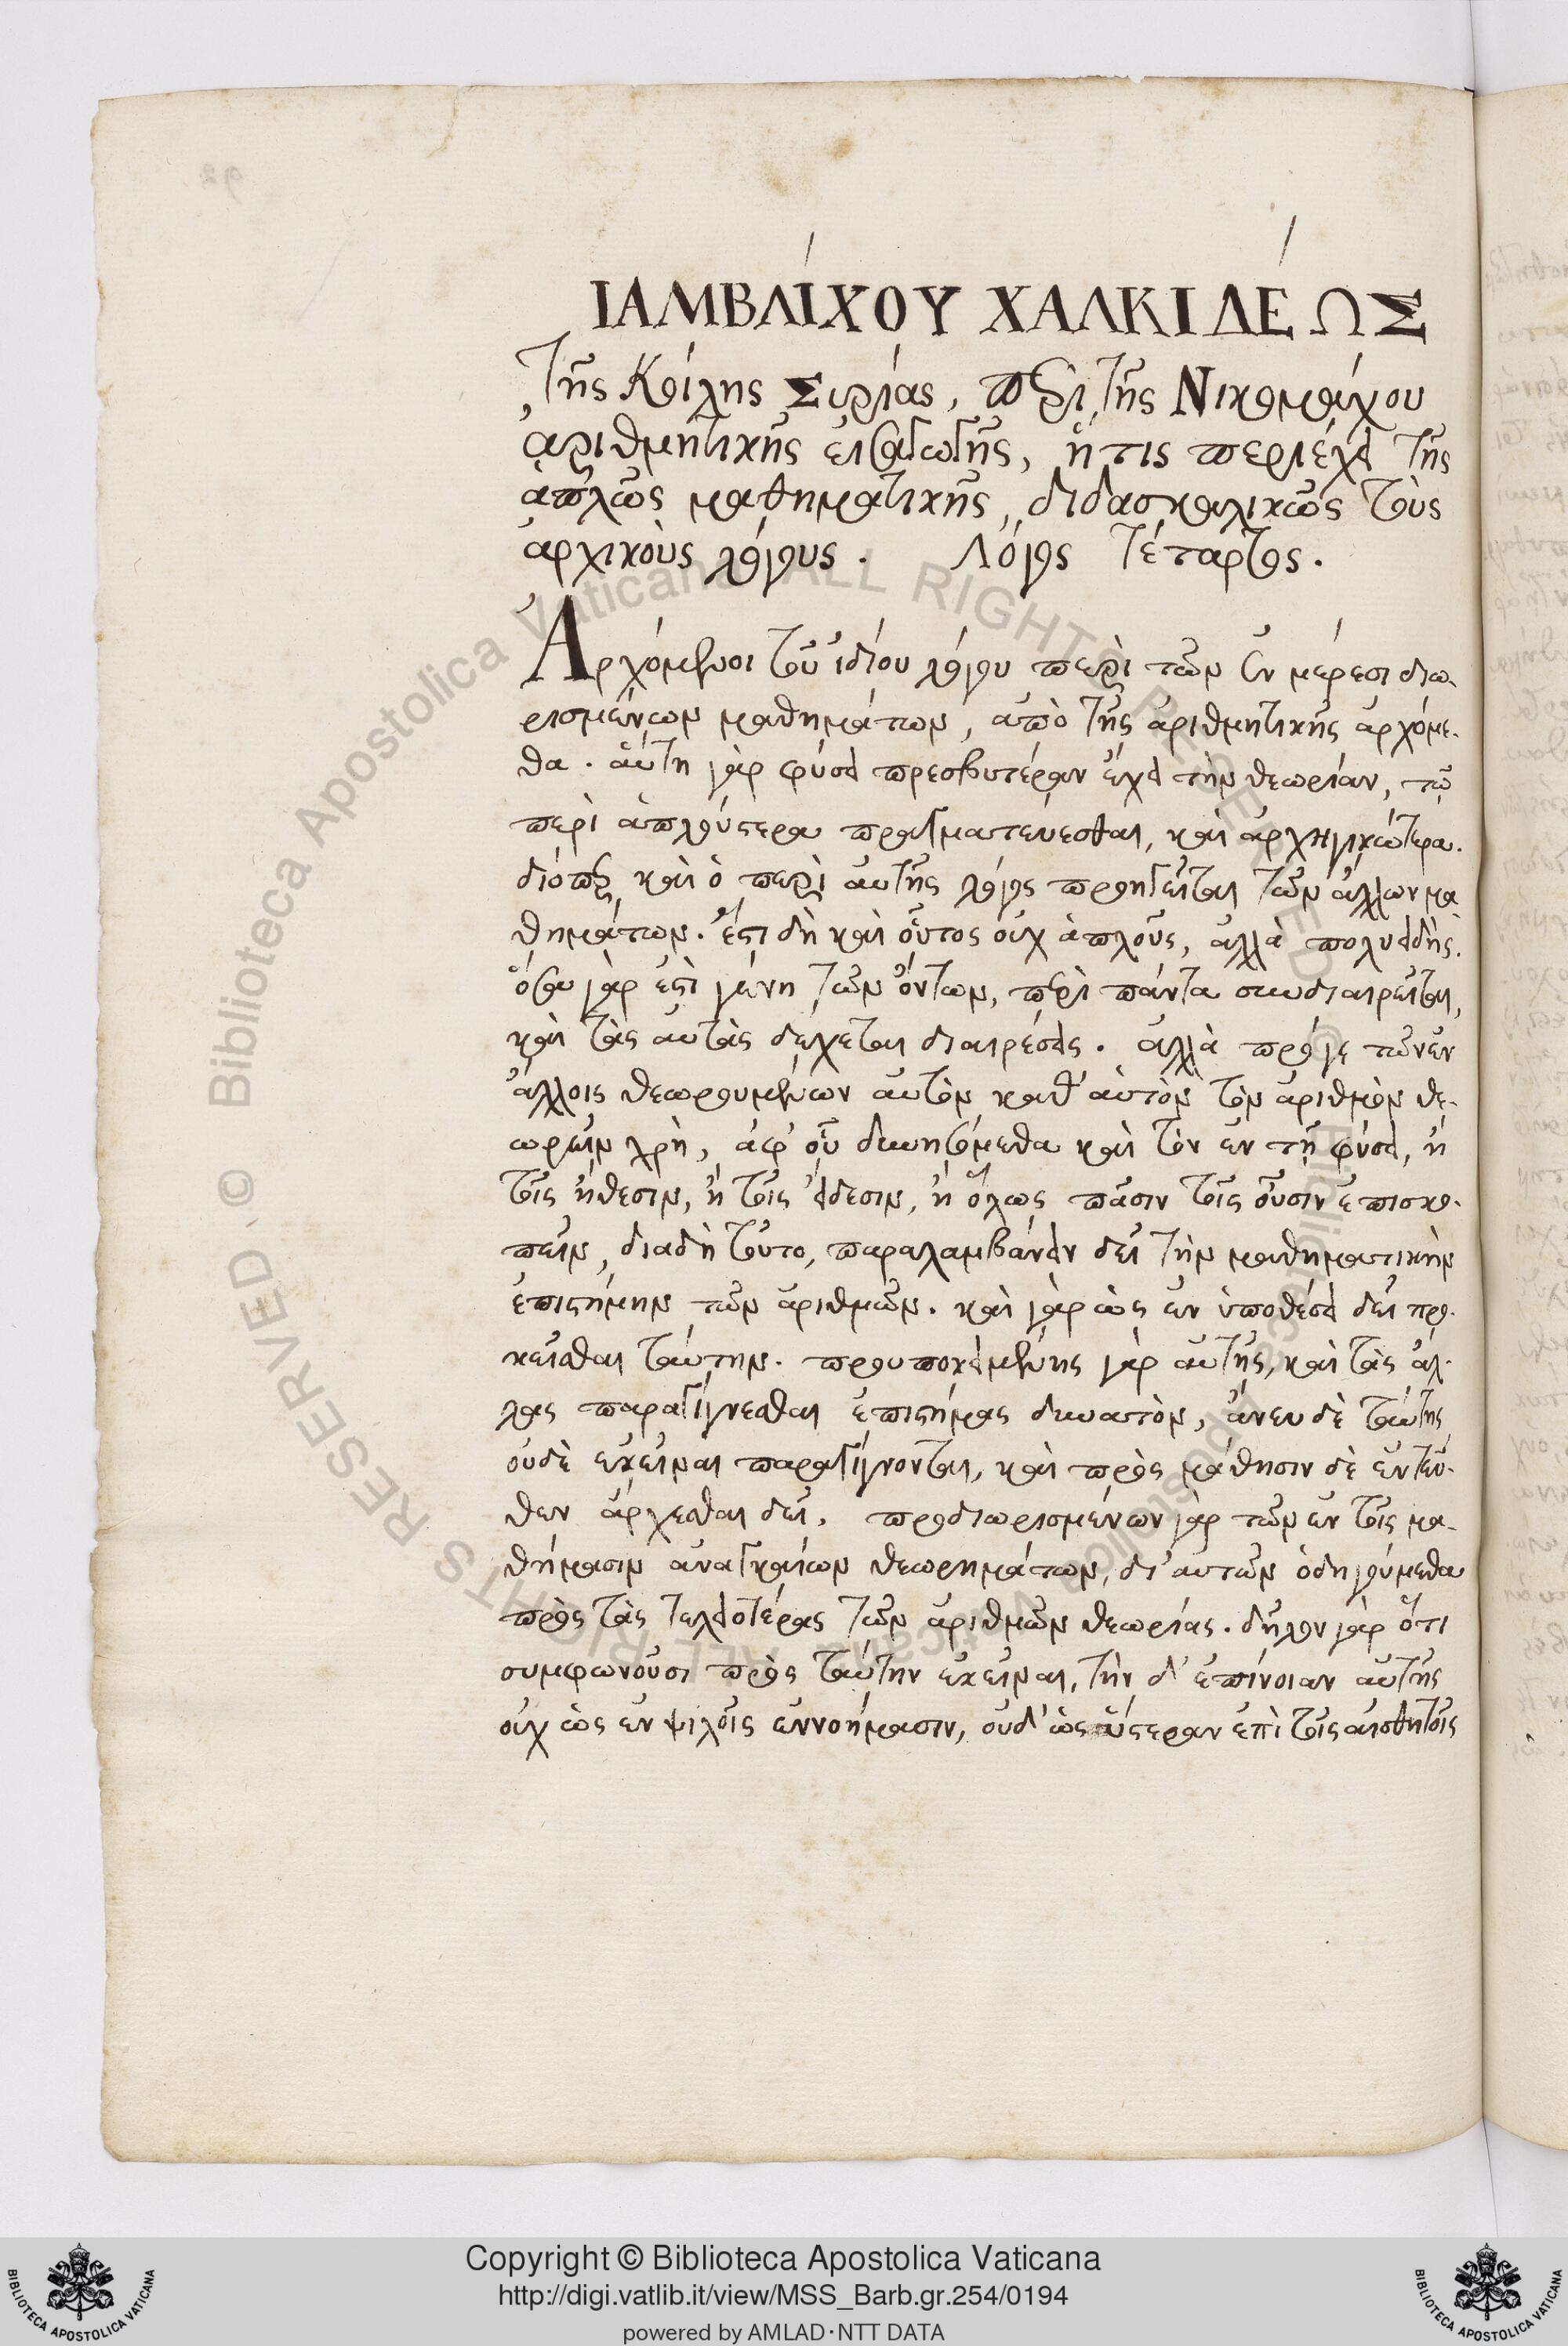 ΙΑΜΒΛΊΧΟΥ ΧΑΛΚΙΔΈΩΣ
τῆς Κοίλης Συρίας, περὶ τῆς Νικομάχου
ἀριθμητικῆς εἰσαγωγῆς, ἥτις περιέχει τῆς
ἁπλῶς μαθηματικῆς, διδασκαλικῶς τοὺς
ἀρχικοὺς λόγους. Λόγος τέταρτος.
Ἀρχόμενοι τοῦ ἰδίου λόγου περὶ τῶν ἐν μέρεσι διω-
ρισμένων μαθημάτων, ἀπὸ τῆς ἀριθμητικῆς ἀρχόμε-
θα. αὕτη γὰρ φύσει πρεσβυτέραν ἔχει τὴν θεωρίαν, τῷ
περὶ ἁπλούστερα πραγματεύεσθαι, καὶ ἀρχηγικώτερα.
διόπερ καὶ ὁ περὶ αὐτῆς λόγος προηγεῖται τῶν ἄλλων μα
θημάτων. ἔστι δὴ καὶ οὗτος οὐχ ἁπλοῦς, ἀλλὰ πολυειδής.
ὅσα γὰρ ἐστὶ γένη τῶν ὄντων, περὶ πάντα συνδιαιρεῖται,
καὶ τὰς αὐτὰς δέχεται διαιρέσεις. ἀλλὰ πρόγε τῶν ἐν
ἄλλοις θεωρουμένων αὐτὸν καθ' αὑτὸν τὸν ἀριθμὸν θε-
ωρεῖν χρὴ, ἀφ' οὗ δυνησόμεθα καὶ τὸν ἐν τῇ φύσει, ἢ
τοῖς ἤθεσιν, ἢ τοῖς εἴδεσιν, ἢ ὅλως πᾶσιν τοῖς οὖσιν ἐπισκο-
πεῖν, διαδὴ τοῦτο, παραλαμβάνειν δεῖ τὴν μαθηματικὴν
ἐπιστήμην τῶν ἀριθμῶν. καὶ γὰρ ὡς ἐν ὑποθέσει δεῖ προ-
κεῖσθαι ταύτην. προυποκειμένης γὰρ αὐτῆς, καὶ τὰς ἄλ-
λας παραγίγνεσθαι ἐπιστήμας δυνατὸν, ἄνευ δὲ ταύτης
οὐδὲ ἐκεῖναι παραγίγνονται, καὶ πρὸς μάθησιν δὲ ἐντεῦ-
θεν ἄρχεσθαι δεῖ. προδιωρισμένων γὰρ τῶν ἐν τοῖς μα-
θήμασιν ἀναγκαίων θεωρημάτων, δι' αὐτῶν ὁδηγούμεθα
πρὸς τὰς τελειοτέρας τῶν ἀριθμῶν θεωρίας. δῆλον γὰρ ὅτι
συμφωνοῦσι πρὸς ταύτην ἐκεῖναι, τὴν δ' ἐπίνοιαν αὐτῆς
οὐχ ὡς ἐν ψιλοῖς ἐννοήμασιν, οὐδ' ὡς ὕστεραν ἐπὶ τοῖς αἰσθητοῖς
Copyright © Biblioteca Apostolica Vaticana
http://digi.vatlib.it/view/MSS_Barb.gr.254/0194
powered by AMLAD·NTT DATA
BIBLIOTECA APOSTOLICA VATICANA
BIBLIOTECA APOSTOLICA VATICANA
© Biblioteca Apostolica Vaticana ALL RIGHTS RESERVED © Biblioteca Apostolica Vaticana ALL RIGHTS RESERVED